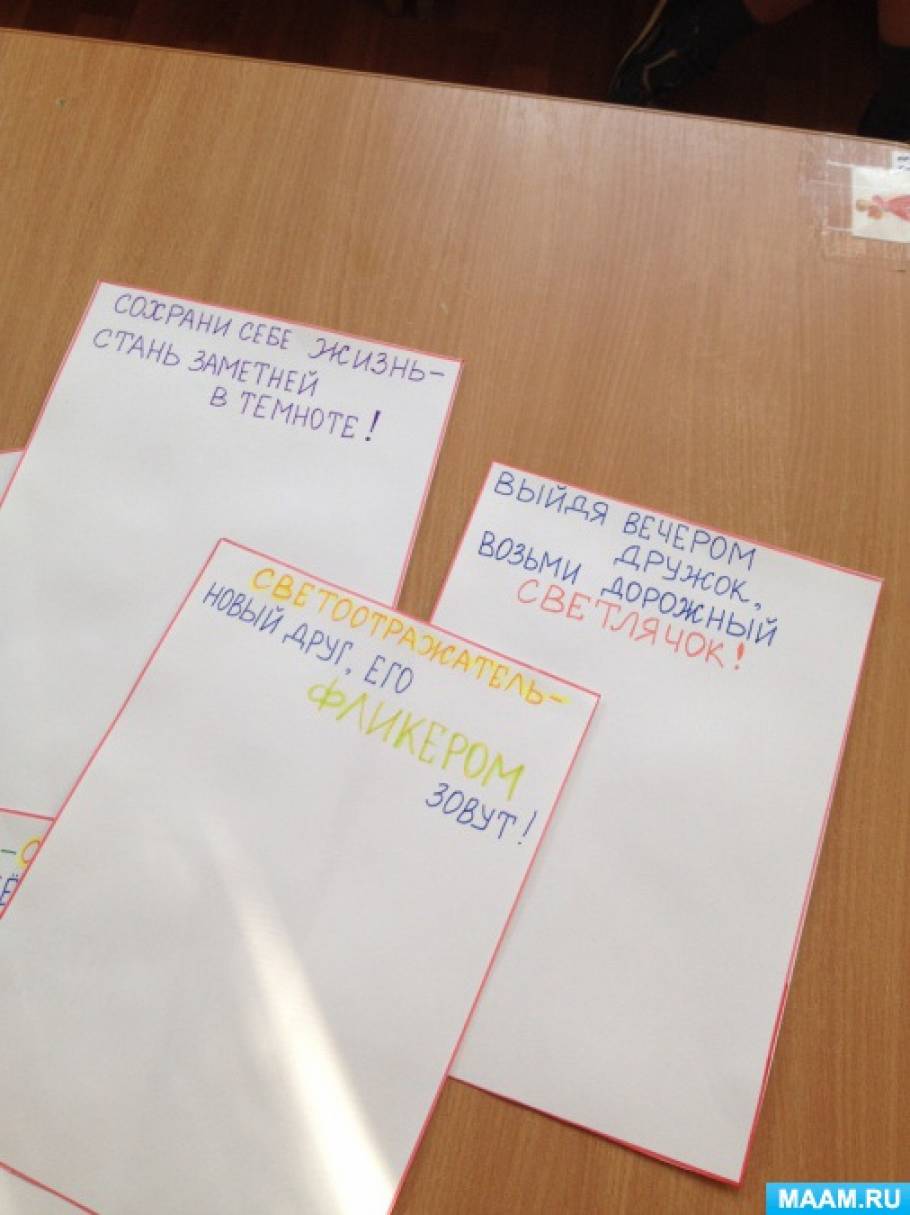 СОХРАНИ СЕБЕ ЖИЗНЬ-
СТАНЬ ЗАМЕТНЕЙ
В ТЕМНОТЕ!
ВЫЙДЯ ВЕЧЕРОМ
ДРУЖОК,
ВОЗЬМИ ДОРОЖНЫЙ
СВЕТЛЯЧОК!
СВЕТООТРАЖАТЕЛЬ-
НОВЫЙ ДРУГ, ЕГО
ФЛИКЕРОМ
ЗОВУТ!
MAAM.RU